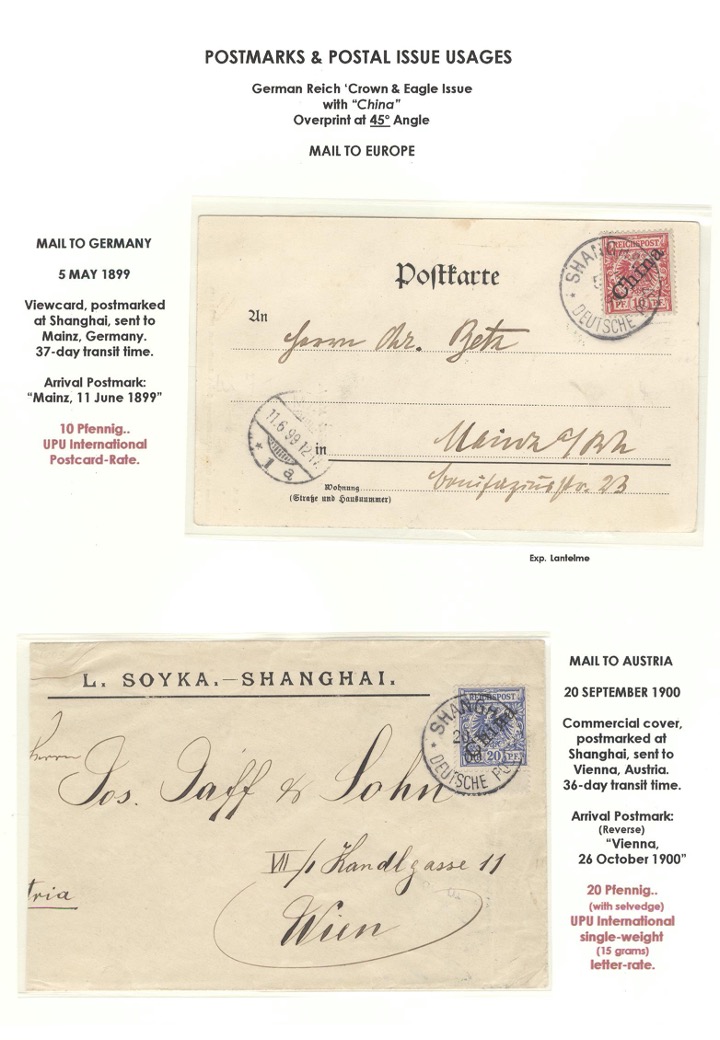 POSTMARKS & POSTAL ISSUE USAGES
German Reich ‘Crown & Eagle Issue
with “China”
Overprint at 45° Angle
MAIL TO EUROPE
MAIL TO GERMANY
5 MAY 1899
Viewcard, postmarked
at Shanghai, sent to
Mainz, Germany.
37-day transit time.
Arrival Postmark:
“Mainz, 11 June 1899”
10 Pfennig..
UPU International
Postcard-Rate.
Postkarte
SHANG
DEUTSCHE
REICHSPOST
China
PF. 10 PF.
An
Herrn Chr. Betz
11.6.99.12-1
1 a
in
Mainz a/Rh
Wohnung
(Straße und Hausnummer)
Bonifaziusstr. 23
Exp. Lantelme
L. SOYKA.—SHANGHAI.
SHANGHA
DEUTSCHE PO
REICHSPOST
China
20 PF.
Herrn
Jos. Jaff & Sohn
VII/1 Kandlgasse 11
tria
Wien
MAIL TO AUSTRIA
20 SEPTEMBER 1900
Commercial cover,
postmarked at
Shanghai, sent to
Vienna, Austria.
36-day transit time.
Arrival Postmark:
(Reverse)
“Vienna,
26 October 1900”
20 Pfennig..
(with selvedge)
UPU International
single-weight
(15 grams)
letter-rate.